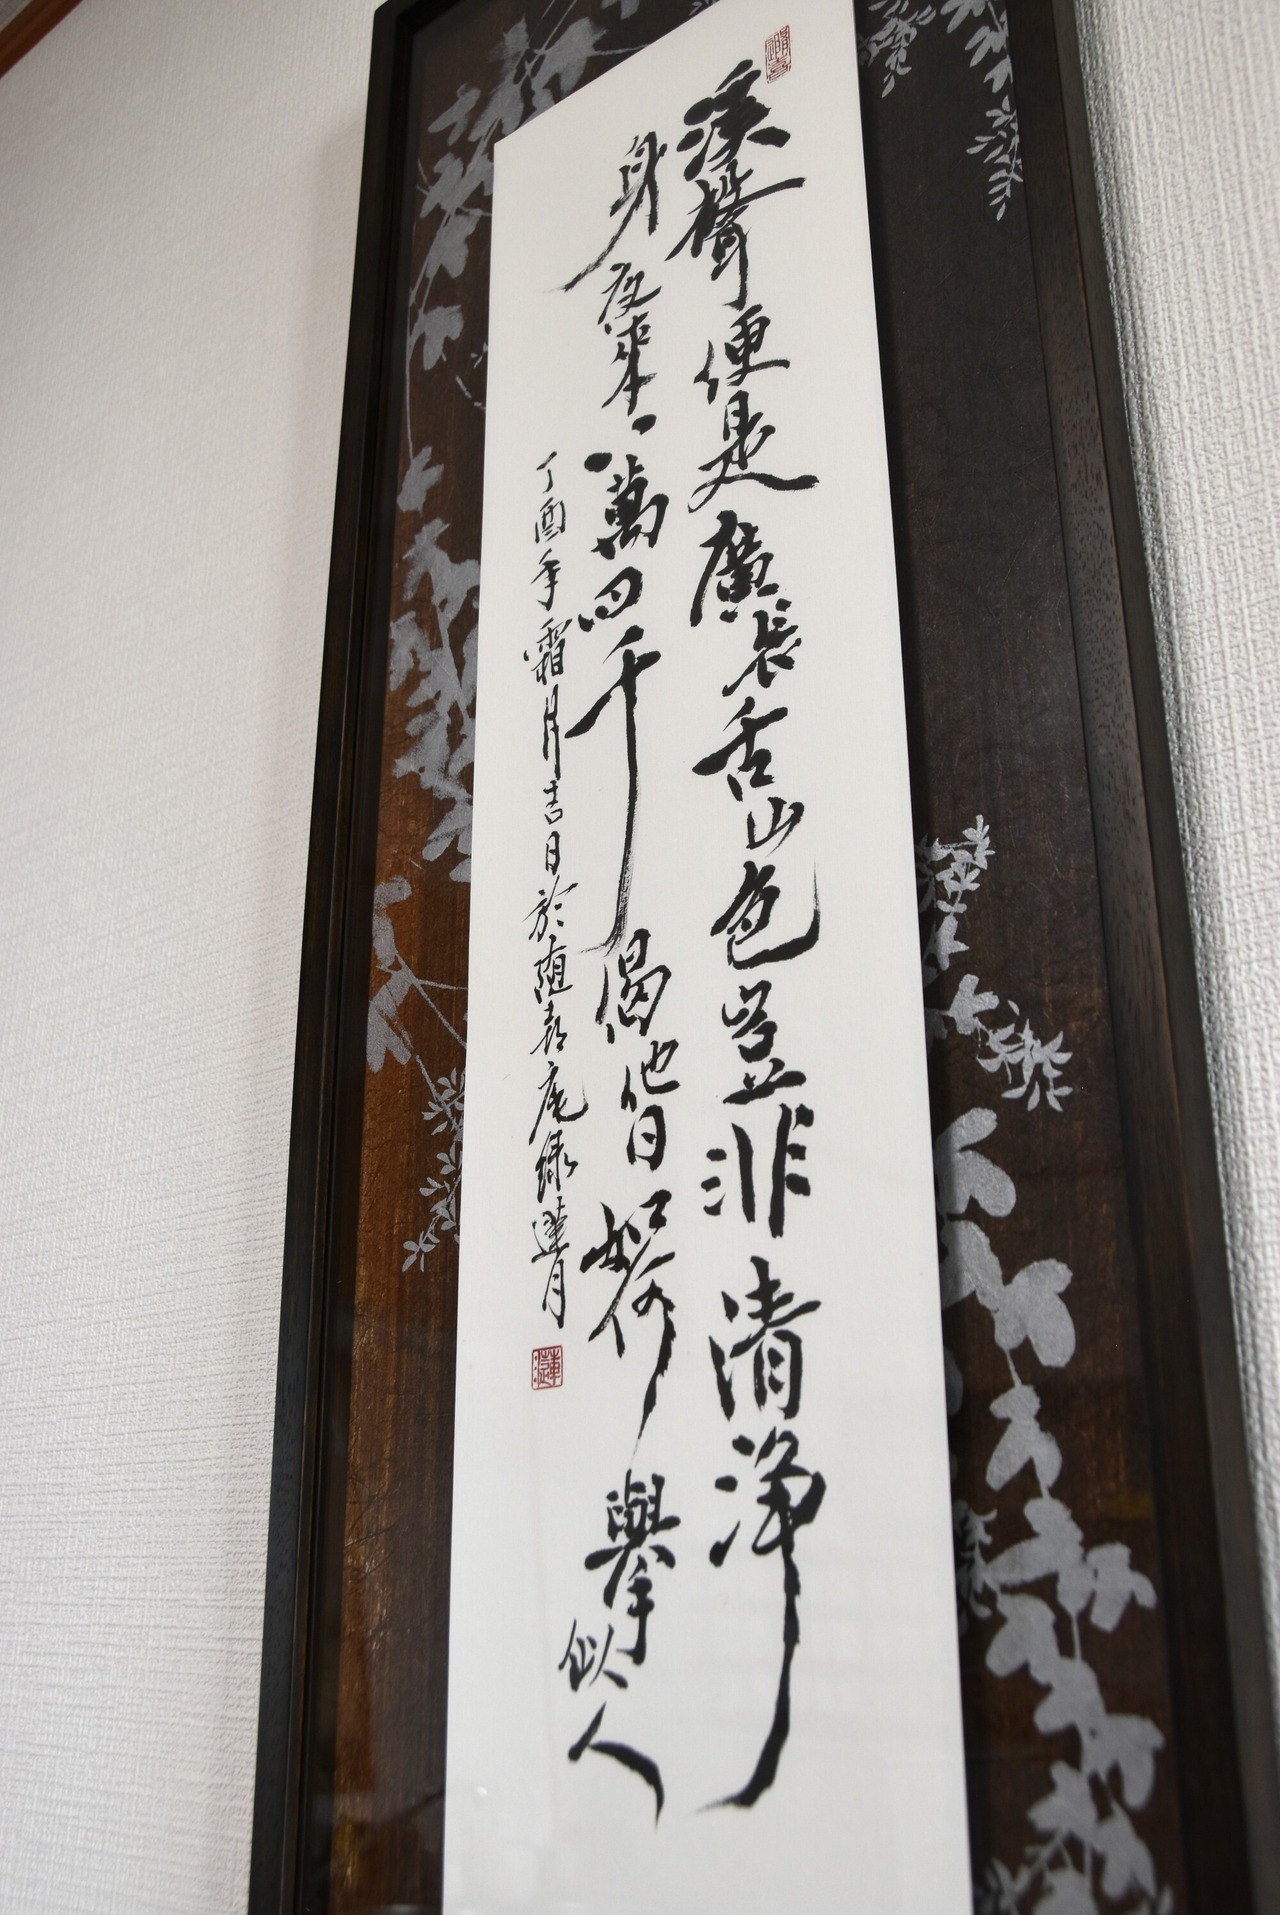 溪聲便是廣長舌山色豈非清浄
身夜來八萬四千偈他日如何舉似人
丁酉年霜月吉日於随喜庵緑蓮月